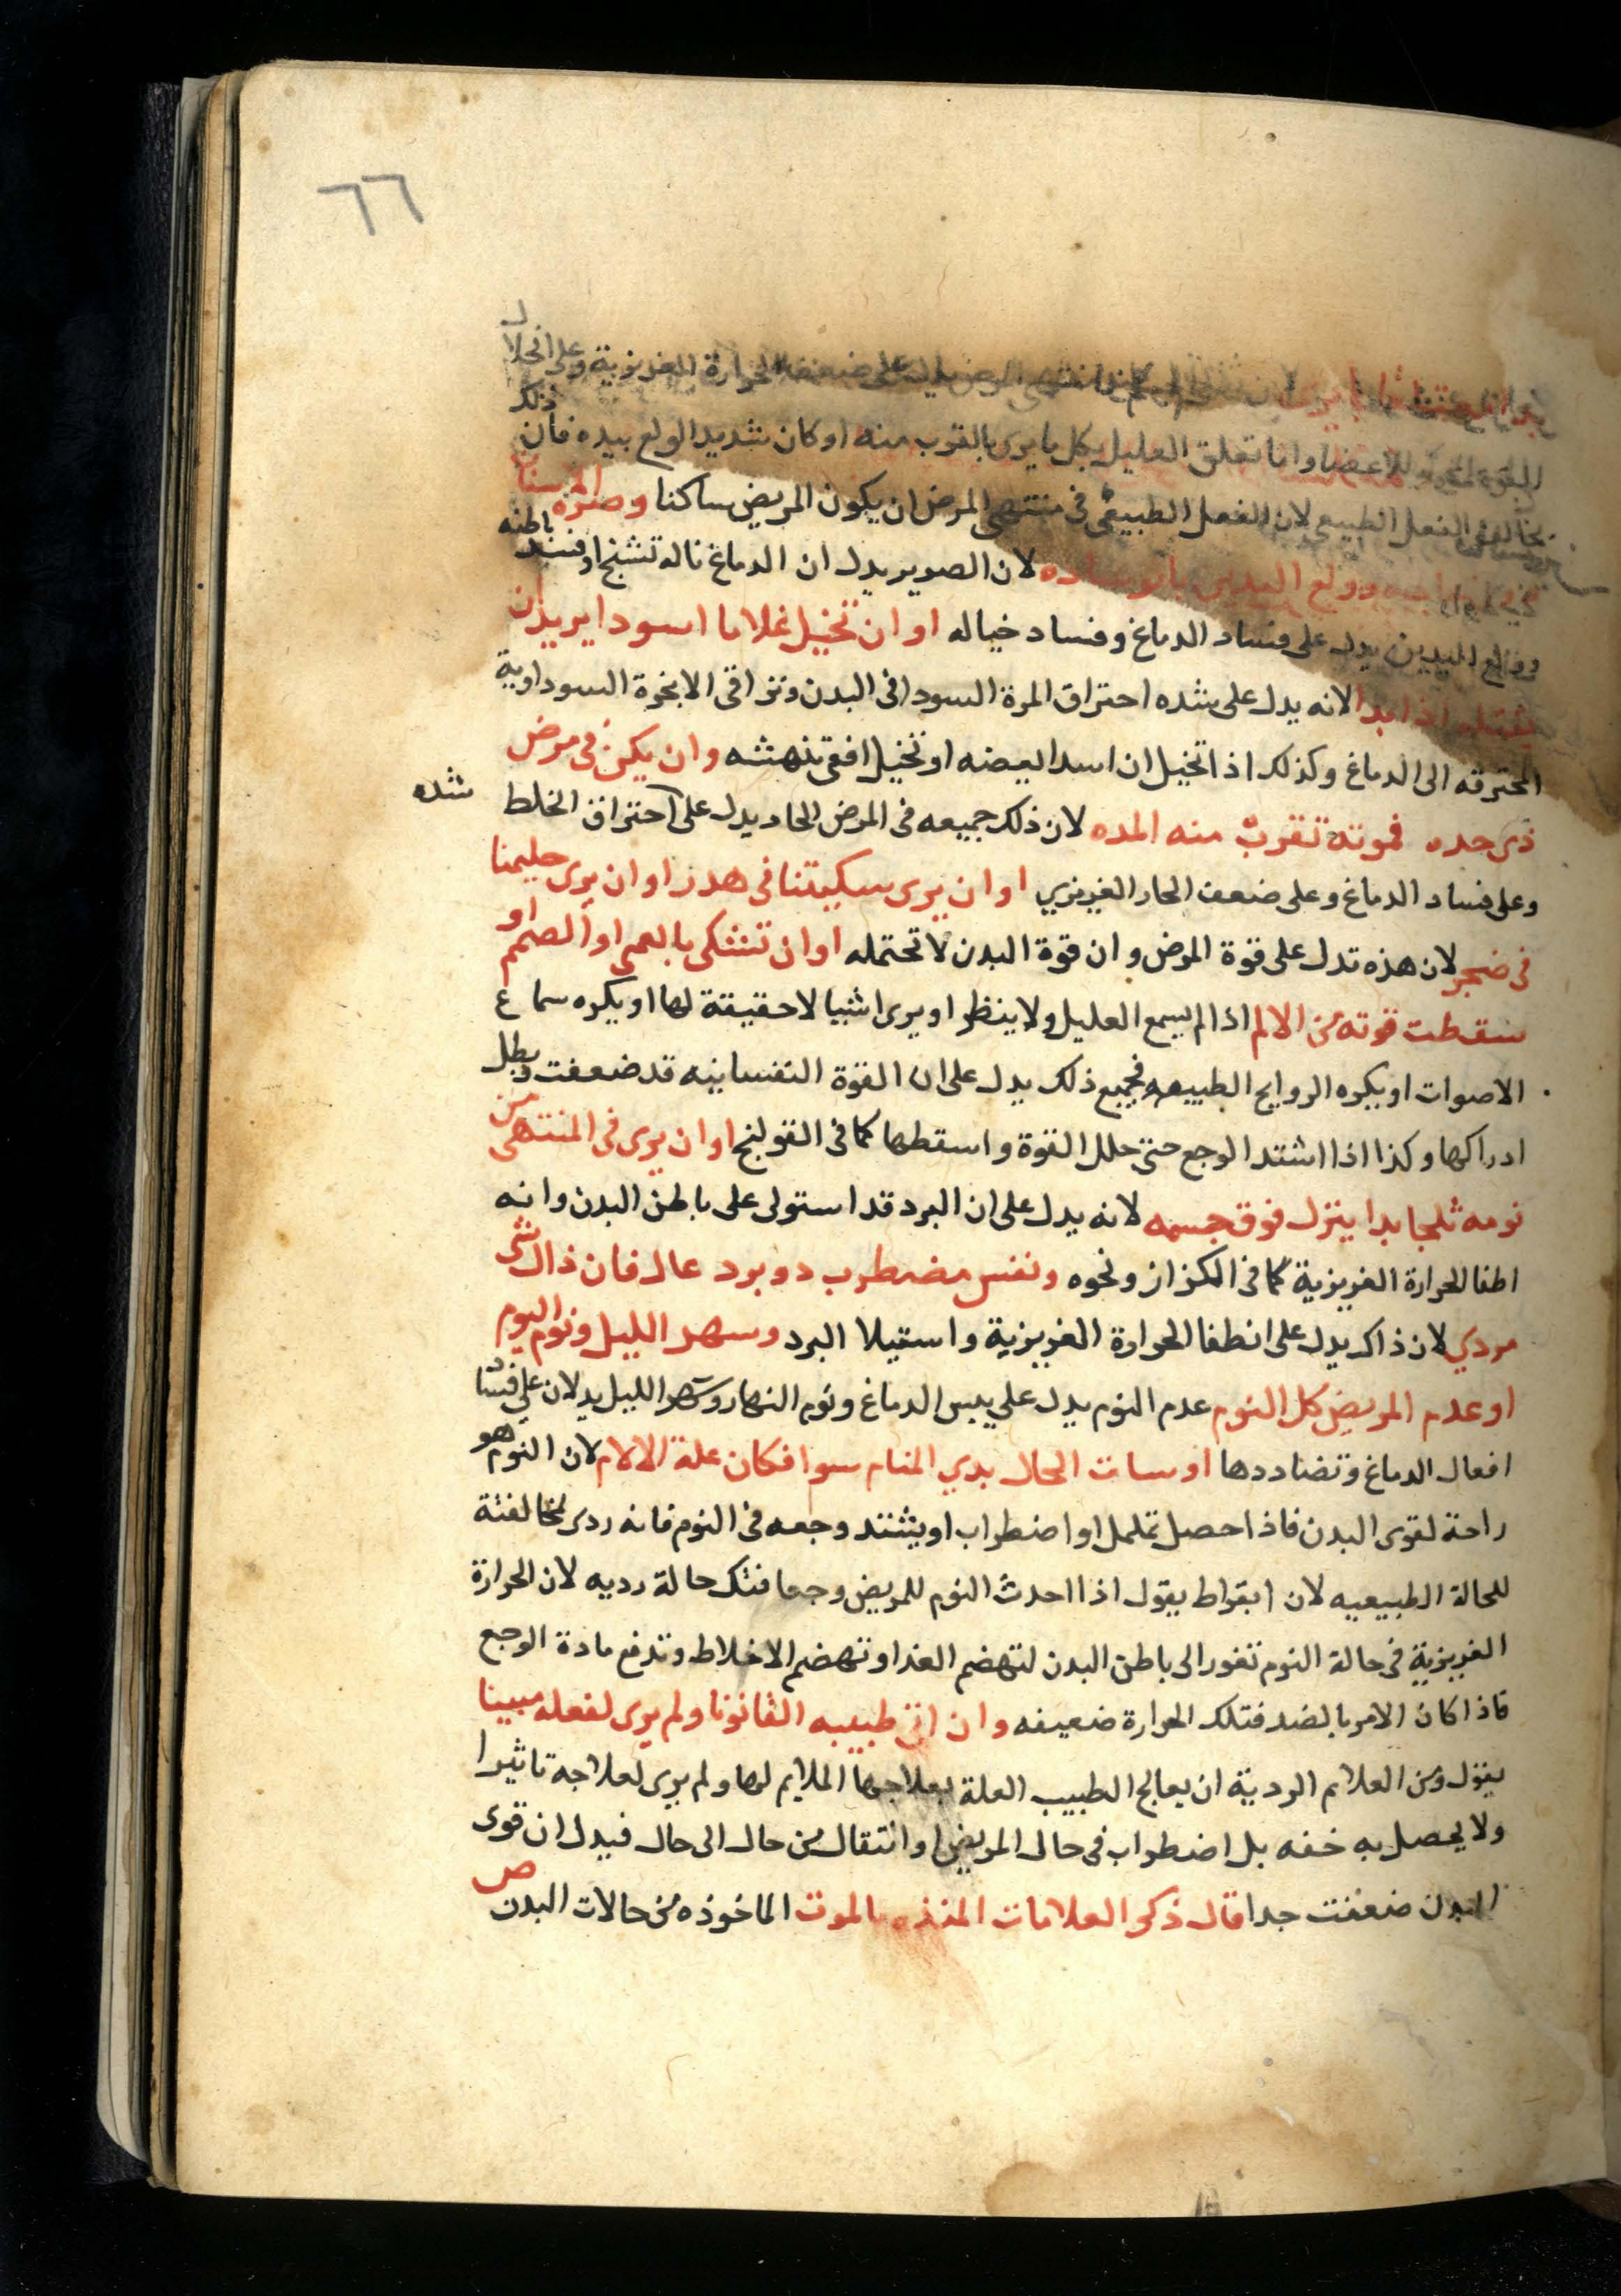 ٦٦
المرض يدل على ضعف الحرارة الغريزية وعلى انحلال
للاعضا واما تعلق العليل بكل ما يرى بالقرب منه او كان شديد الولع بيده فان ذلك
مخالف الفعل الطبيعى لان الفعل الطبيعى فى منتهى المرض ان يكون المريض ساكنا وصره الاسنان
وولع اليدين لان الصرير يدل ان الدماغ ناله تشنج او فسد باطنه
وولع اليدين يدل على فساد الدماغ وفساد خياله او ان تخيل غلاما اسودا يريد ان
يقتله اذا بدا لانه يدل على شده احتراق المرة السودا فى البدن وتراقى الابخرة السوداوية
المحترقه الى الدماغ وكذلك اذا تخيل ان اسدا يعضه او تخيل افعى تنهشه وان يكن فى مرض
ذى حده فموته تقرب منه المده لان ذلك جميعه فى المرض الحاد يدل على احتراق الخلط
شده
وعلى فساد الدماغ وعلى ضعف الحار الغريزي او ان يرى سكيتنا فى هدر او ان يرى حليمنا
فى ضجر لان هذه تدل على قوة المرض وان قوة البدن لا تحتمله او ان تشكى بالعمى او الصمم او
سقطت قوته من الالم اذا لم يسمع العليل ولا ينظر او يرى اشيا لا حقيقة لها او يكره سماع
الاصوات او يكره الروايح الطيبه فجميع ذلك يدل على ان القوة النفسانيه قد ضعفت وبطل
ادراكها وكذا اذا اشتد الوجع حتى حلل القوة واسقطها كما فى القولنج او ان يرى فى المنتهى من
نومه ثلجا بدا ينزل فوق جسمه لانه يدل على ان البرد قد استولى على باطن البدن وانه
اطفا الحرارة الغريزية كما فى الكزاز ونحوه ونفس مضطرب دو برد عال فان ذاك شى
مردي لان ذاك يدل على انطفا الحرارة الغريزية واستيلا البرد وسهر الليل ونوم اليوم
او عدم المريض كل النوم عدم النوم يدل على يبس الدماغ ونوم النهار وسهر الليل يدلان على فساد
افعال الدماغ وتضاددها او سات الحال بدي المنام سوا فكان علة الالام لان النوم هو
راحة لقوى البدن فاذا حصل تململ او اضطراب او يشتد وجعه فى النوم فانه ردى لمخالفتة
للحالة الطبيعيه لان ابقراط يقول اذا احدث النوم للمريض وجعا فتلك حالة رديه لان الحرارة
الغريزية فى حالة النوم تغور الى باطن البدن لتهضم الغذا وتهضم الاخلاط وتدفع مادة الوجع
فاذا كان الامر بالضد فتلك الحرارة ضعيفه وان اتى طبيبه القانونا ولم يرى لفعله مبينا
يقول ومن العلام الردية ان يعالج الطبيب العلة بعلاجها الملايم لها ولم يرى لعلاجه تاثيرا
ولا يحصل به خفه بل اضطراب فى حال المريض او انتقال من حال الى حال فيدل ان قوى
البدن ضعفت جدا قال ذكر العلامات المنذره بالموت الماخوذه من حالات البدن ص